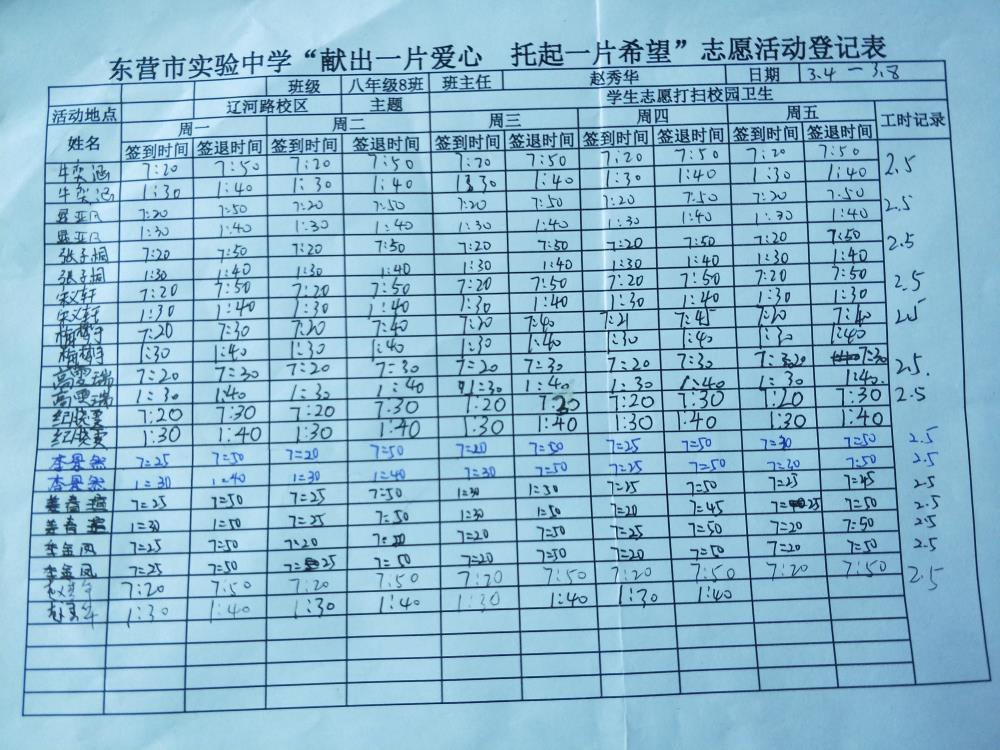 东营市实验中学“献出一片爱心 托起一片希望”志愿活动登记表
班级 八年级8班 班主任 赵秀华 日期 3.4 — 3.8
活动地点 辽河路校区 主题 学生志愿打扫校园卫生
姓名 周一 周二 周三 周四 周五 工时记录
签到时间 签退时间 签到时间 签退时间 签到时间 签退时间 签到时间 签退时间 签到时间 签退时间
牛奕涵 7:20 7:50 7:20 7:50 7:20 7:50 7:20 7:50 7:20 7:50 2.5
牛奕涵 1:30 1:40 1:30 1:40 1:30 1:40 1:30 1:40 1:30 1:40
7:20 7:50 7:20 7:50 7:20 7:50 7:20 7:50 7:20 7:50 2.5
1:30 1:40 1:30 1:40 1:30 1:40 1:30 1:40 1:30 1:40
张子桐 7:20 7:50 7:20 7:50 7:20 7:50 7:20 7:50 7:20 7:50 2.5
张子桐 1:30 1:40 1:30 1:40 1:30 1:40 1:30 1:40 1:30 1:40
7:20 7:50 7:20 7:50 7:20 7:50 7:20 7:50 7:20 7:50 2.5
1:30 1:40 1:30 1:40 1:30 1:40 1:30 1:40 1:30 1:30
7:20 7:30 7:20 7:40 7:20 7:40 7:21 7:45 7:20 7:40 2.5
1:30 1:40 1:30 1:40 1:30 1:40 1:30 1:40 1:30 1:40
高雯瑞 7:20 7:30 7:20 7:30 7:20 7:30 7:20 7:30 7:20 7:30 2.5.
高雯瑞 1:30 1:40 1:30 1:40 1:30 1:40 1:30 1:40 1:30 1:40.
7:20 7:30 7:20 7:30 1:20 7:20 7:20 7:30 7:20 7:30 2.5
1:30 1:40 1:30 1:40 1:30 1:40 1:30 1:40 1:30 1:40
李景然 7:25 7:50 7:20 7:50 7:20 7:50 7:25 7:50 7:30 7:50 2.5
李景然 1:30 1:40 1:30 1:40 7:30 7:50 7:25 7:50 7:30 7:50 2.5
7:25 7:50 7:25 7:50 1:30 1:50 7:25 7:50 7:25 7:45 2.5
1:30 1:50 7:25 7:50 1:30 1:50 7:20 7:45 7:25 7:50 2.5
李金凤 7:25 7:50 7:20 7:20 7:50 7:25 7:50 7:20 7:50 2.5
李金凤 7:25 7:50 7:25 7:50 7:20 7:50 7:20 7:50 7:20 7:50 2.5
7:20 7:50 7:20 7:50 7:20 7:50 7:20 7:50 7:20 7:50 2.5
1:30 1:40 1:30 1:40 1:30 1:40 1:30 1:40